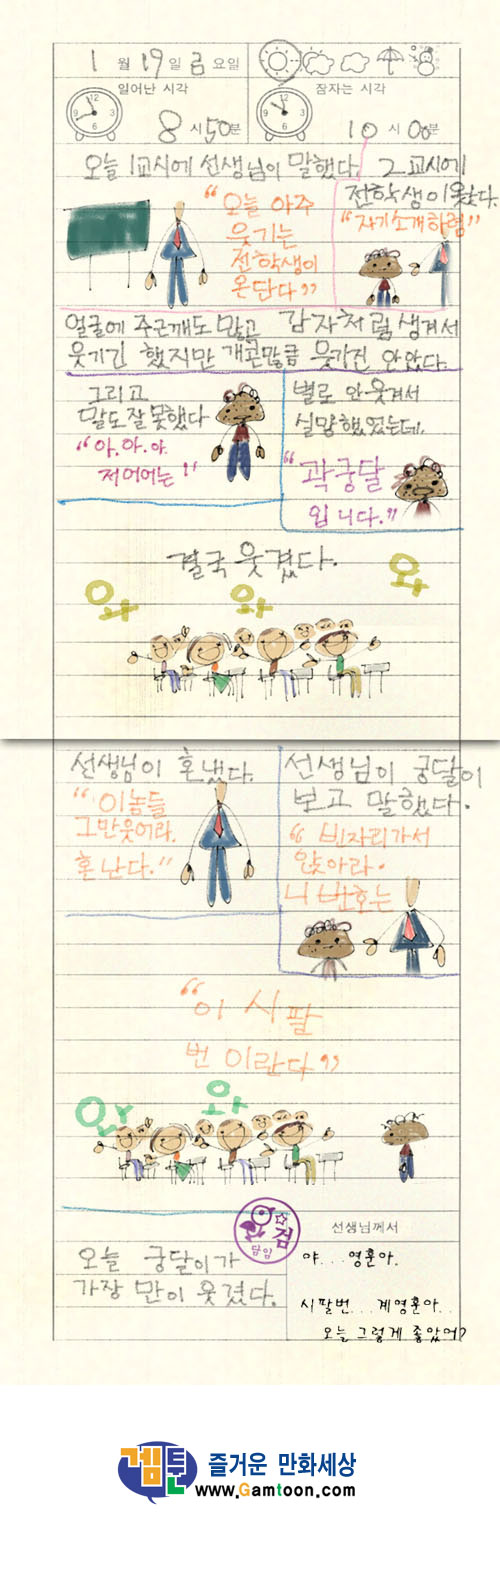 1 월 19 일 금 요일
일어난 시각
8 시 50 분
잠자는 시각
10 시 00 분
오늘 1교시에 선생님이 말했다.
"오늘 아주
웃기는
전학생이
온단다"
2교시에
전학생이 왔다.
"자기소개하렴"
얼굴에 주근깨도 많고 감자처럼 생겨서
웃기긴 했지만 개콘만큼 웃기진 안았다.
그리고
말도 잘 못했다
"아. 아. 아.
저어어는!"
별로 안 웃겨서
실망했었는데.
"곽궁달
입니다."
결국 웃겼다.
와 와 와
선생님이 혼냈다.
"이놈들
그만웃어라.
혼난다."
선생님이 궁달이
보고 말했다.
"빈자리가서
앉아라.
니 번호는
"이 시팔
번 이란다"
와 와
오늘 궁달이가
가장 만이 웃겼다.
검
담임
선생님께서
야... 영훈아.
시팔번... 계영훈아..
오늘 그렇게 좋았어?
겜툰 즐거운 만화세상
www.Gamtoon.com